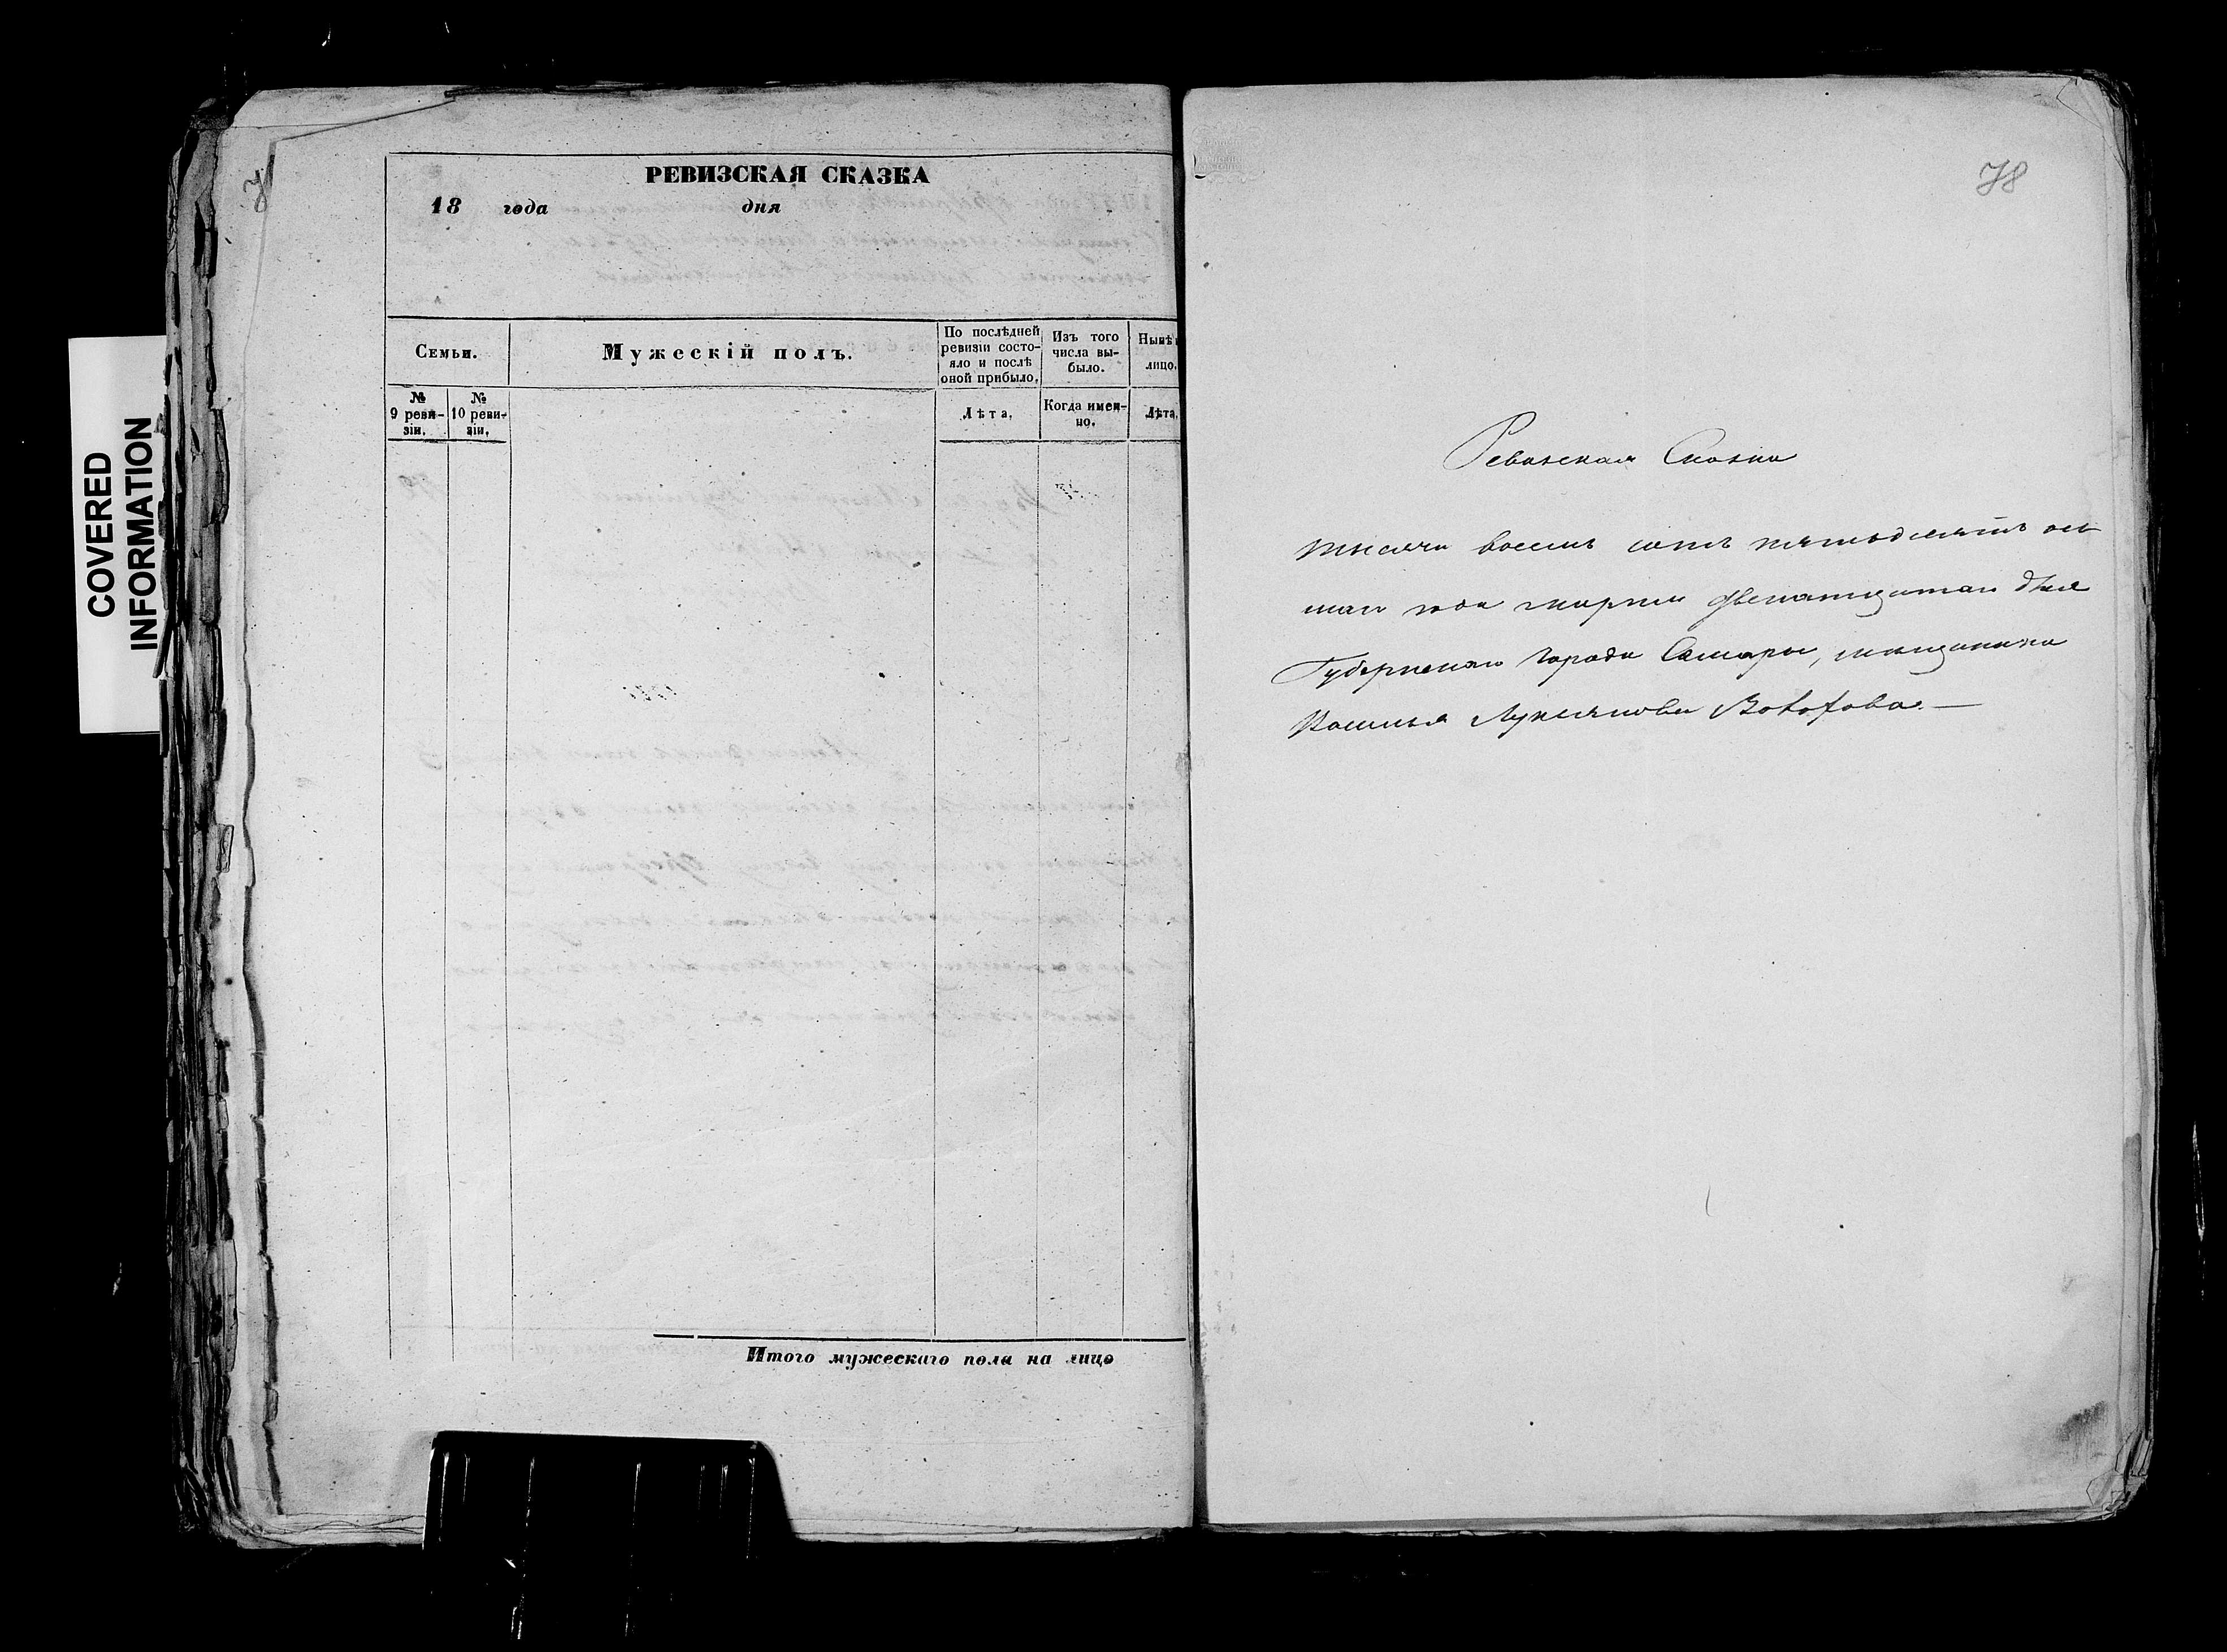 COVERED
INFORMATION
РЕВИЗСКАЯ СКАЗКА
18 года дня
Семьи.
Мужескій полъ.
По послѣдней
ревизіи состо-
яло и послѣ
оной прибыло.
Изъ того
числа вы-
было.
Нынѣ
лицо.
№
9 реви-
зіи.
№
10 реви-
зіи.
Лѣта.
Когда имен-
но.
Лѣта.
Итого мужескаго пола на лицо
78
Ревизская Сказка
тысяча восемь сотъ пятьдесятъ ось
маго года марта двенатцатаго дня
Губернскаго города Самары, мещанина
Лукьянова